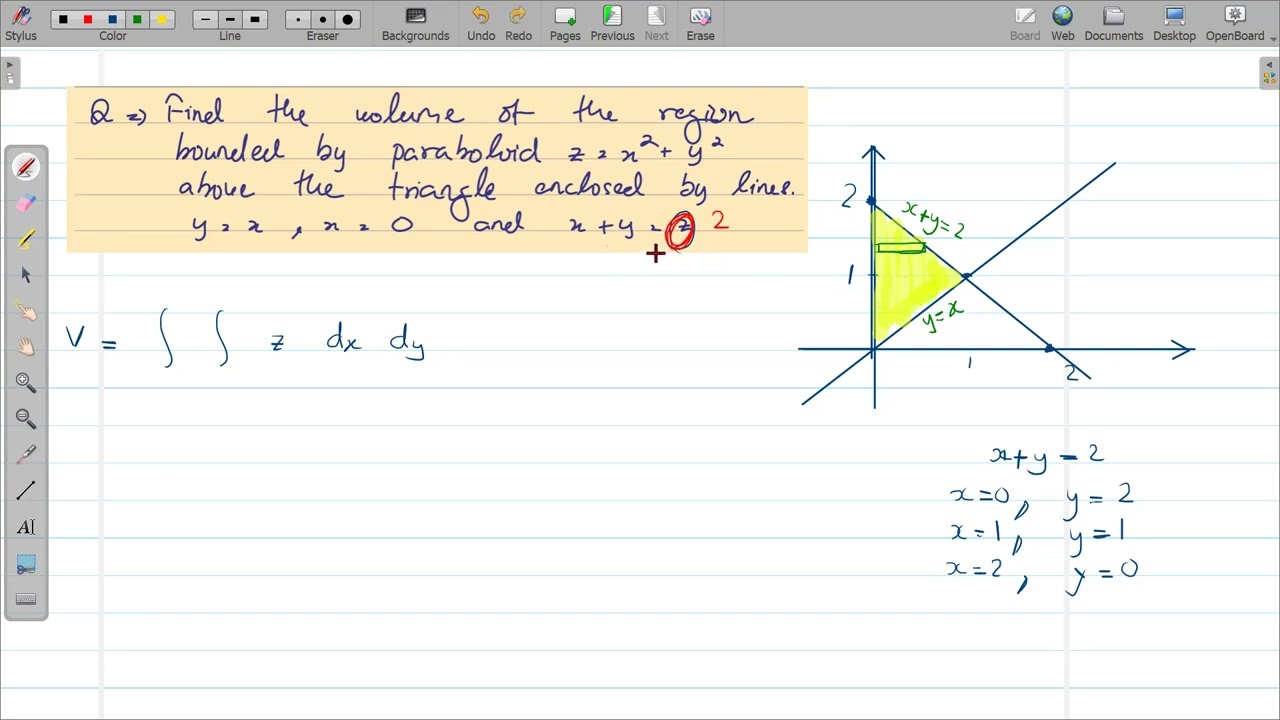 Stylus
Color
Line
Eraser
Backgrounds
Undo
Redo
Pages
Previous
Next
Erase
Board
Web
Documents
Desktop
OpenBoard
Q ⇒ Find the volume of the region
bounded by paraboloid z = x² + y²
above the triangle enclosed by lines.
y = x , x = 0 and x + y = z 2
V = ∫ ∫ z dx dy
2
x+y=2
1
y=x
1
2
x+y = 2
x=0, y = 2
x=1, y = 1
x=2, y = 0
AI